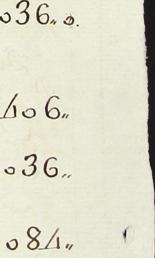 036„ 0.
406„
036„
084„